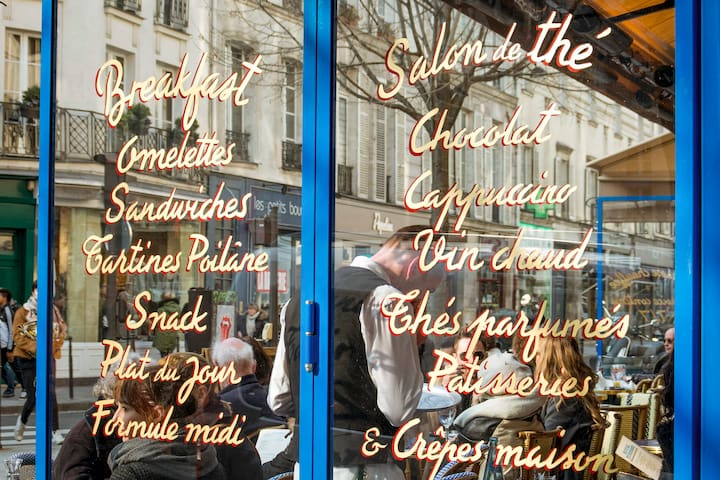 Breakfast
Omelettes
Sandwiches
Tartines Poilâne
Snack
Plat du Jour
Formule midi
Salon de thé
Chocolat
Cappuccino
Vin chaud
Thés parfumés
Patisseries
& Crêpes maison
les petits